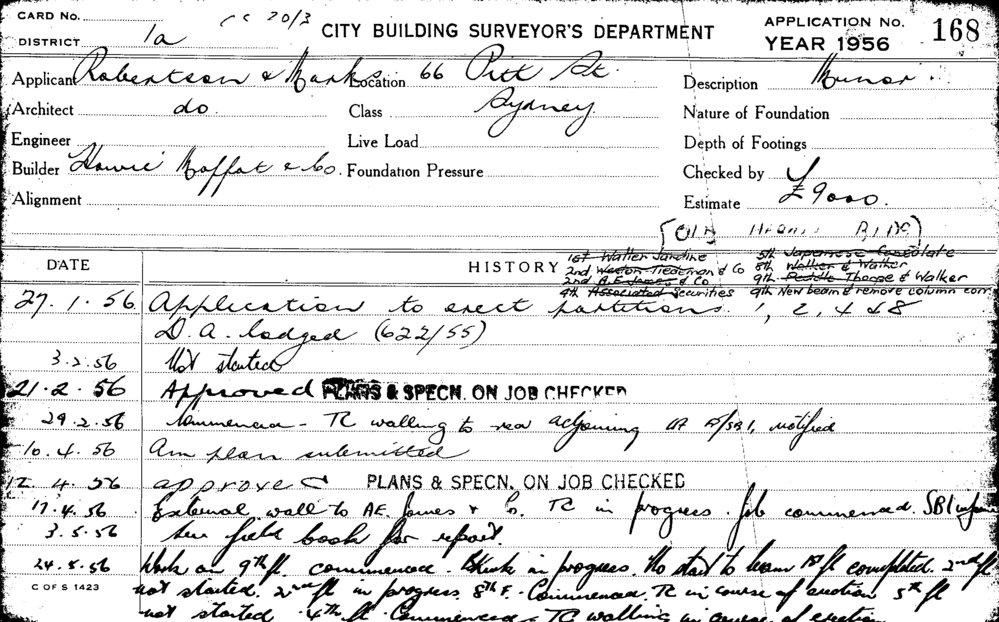 CARD No. CC 20/3
DISTRICT 1a
CITY BUILDING SURVEYOR'S DEPARTMENT
APPLICATION No. 168
YEAR 1956
Applicant Robertson & Marks Location 66 Pitt St. Description Minor
Architect do. Class Sydney Nature of Foundation
Engineer Live Load Depth of Footings
Builder Howie Moffat & Co. Foundation Pressure Checked by
Alignment Estimate £9000.
[OLD HERALD BLDG]
DATE HISTORY
1st Walter Jardine 5th Japanese Consolate
2nd Weston Tiedeman & Co 8th Walker & Walker
2nd & Co 9th Peddle Thorpe & Walker
4th Associated Securities 9th New beam & remove column corr.
27.1.56 Application to erect partitions. 1, 2, 4 & 8
D.A. lodged (622/55)
3.2.56 Not started
21.2.56 Approved PLANS & SPECN. ON JOB CHECKED
29.2.56 Commenced - TC walling to rear adjoining notified
10.4.56 Am plan submitted
12.4.56 approved PLANS & SPECN. ON JOB CHECKED
17.4.56 External wall to AE. James & Co. TC in progress. Job commenced. SBI
3.5.56 See field book for report
24.5.56 Work on 9th fl. commenced. in progress. No start to beam 1st fl completed. 2nd fl
not started. 2nd fl in progress 8th F. Commenced. TC in course of erection 5th fl
not started. 4th fl. Commenced - TC walling in course of erection
C OF S 1423